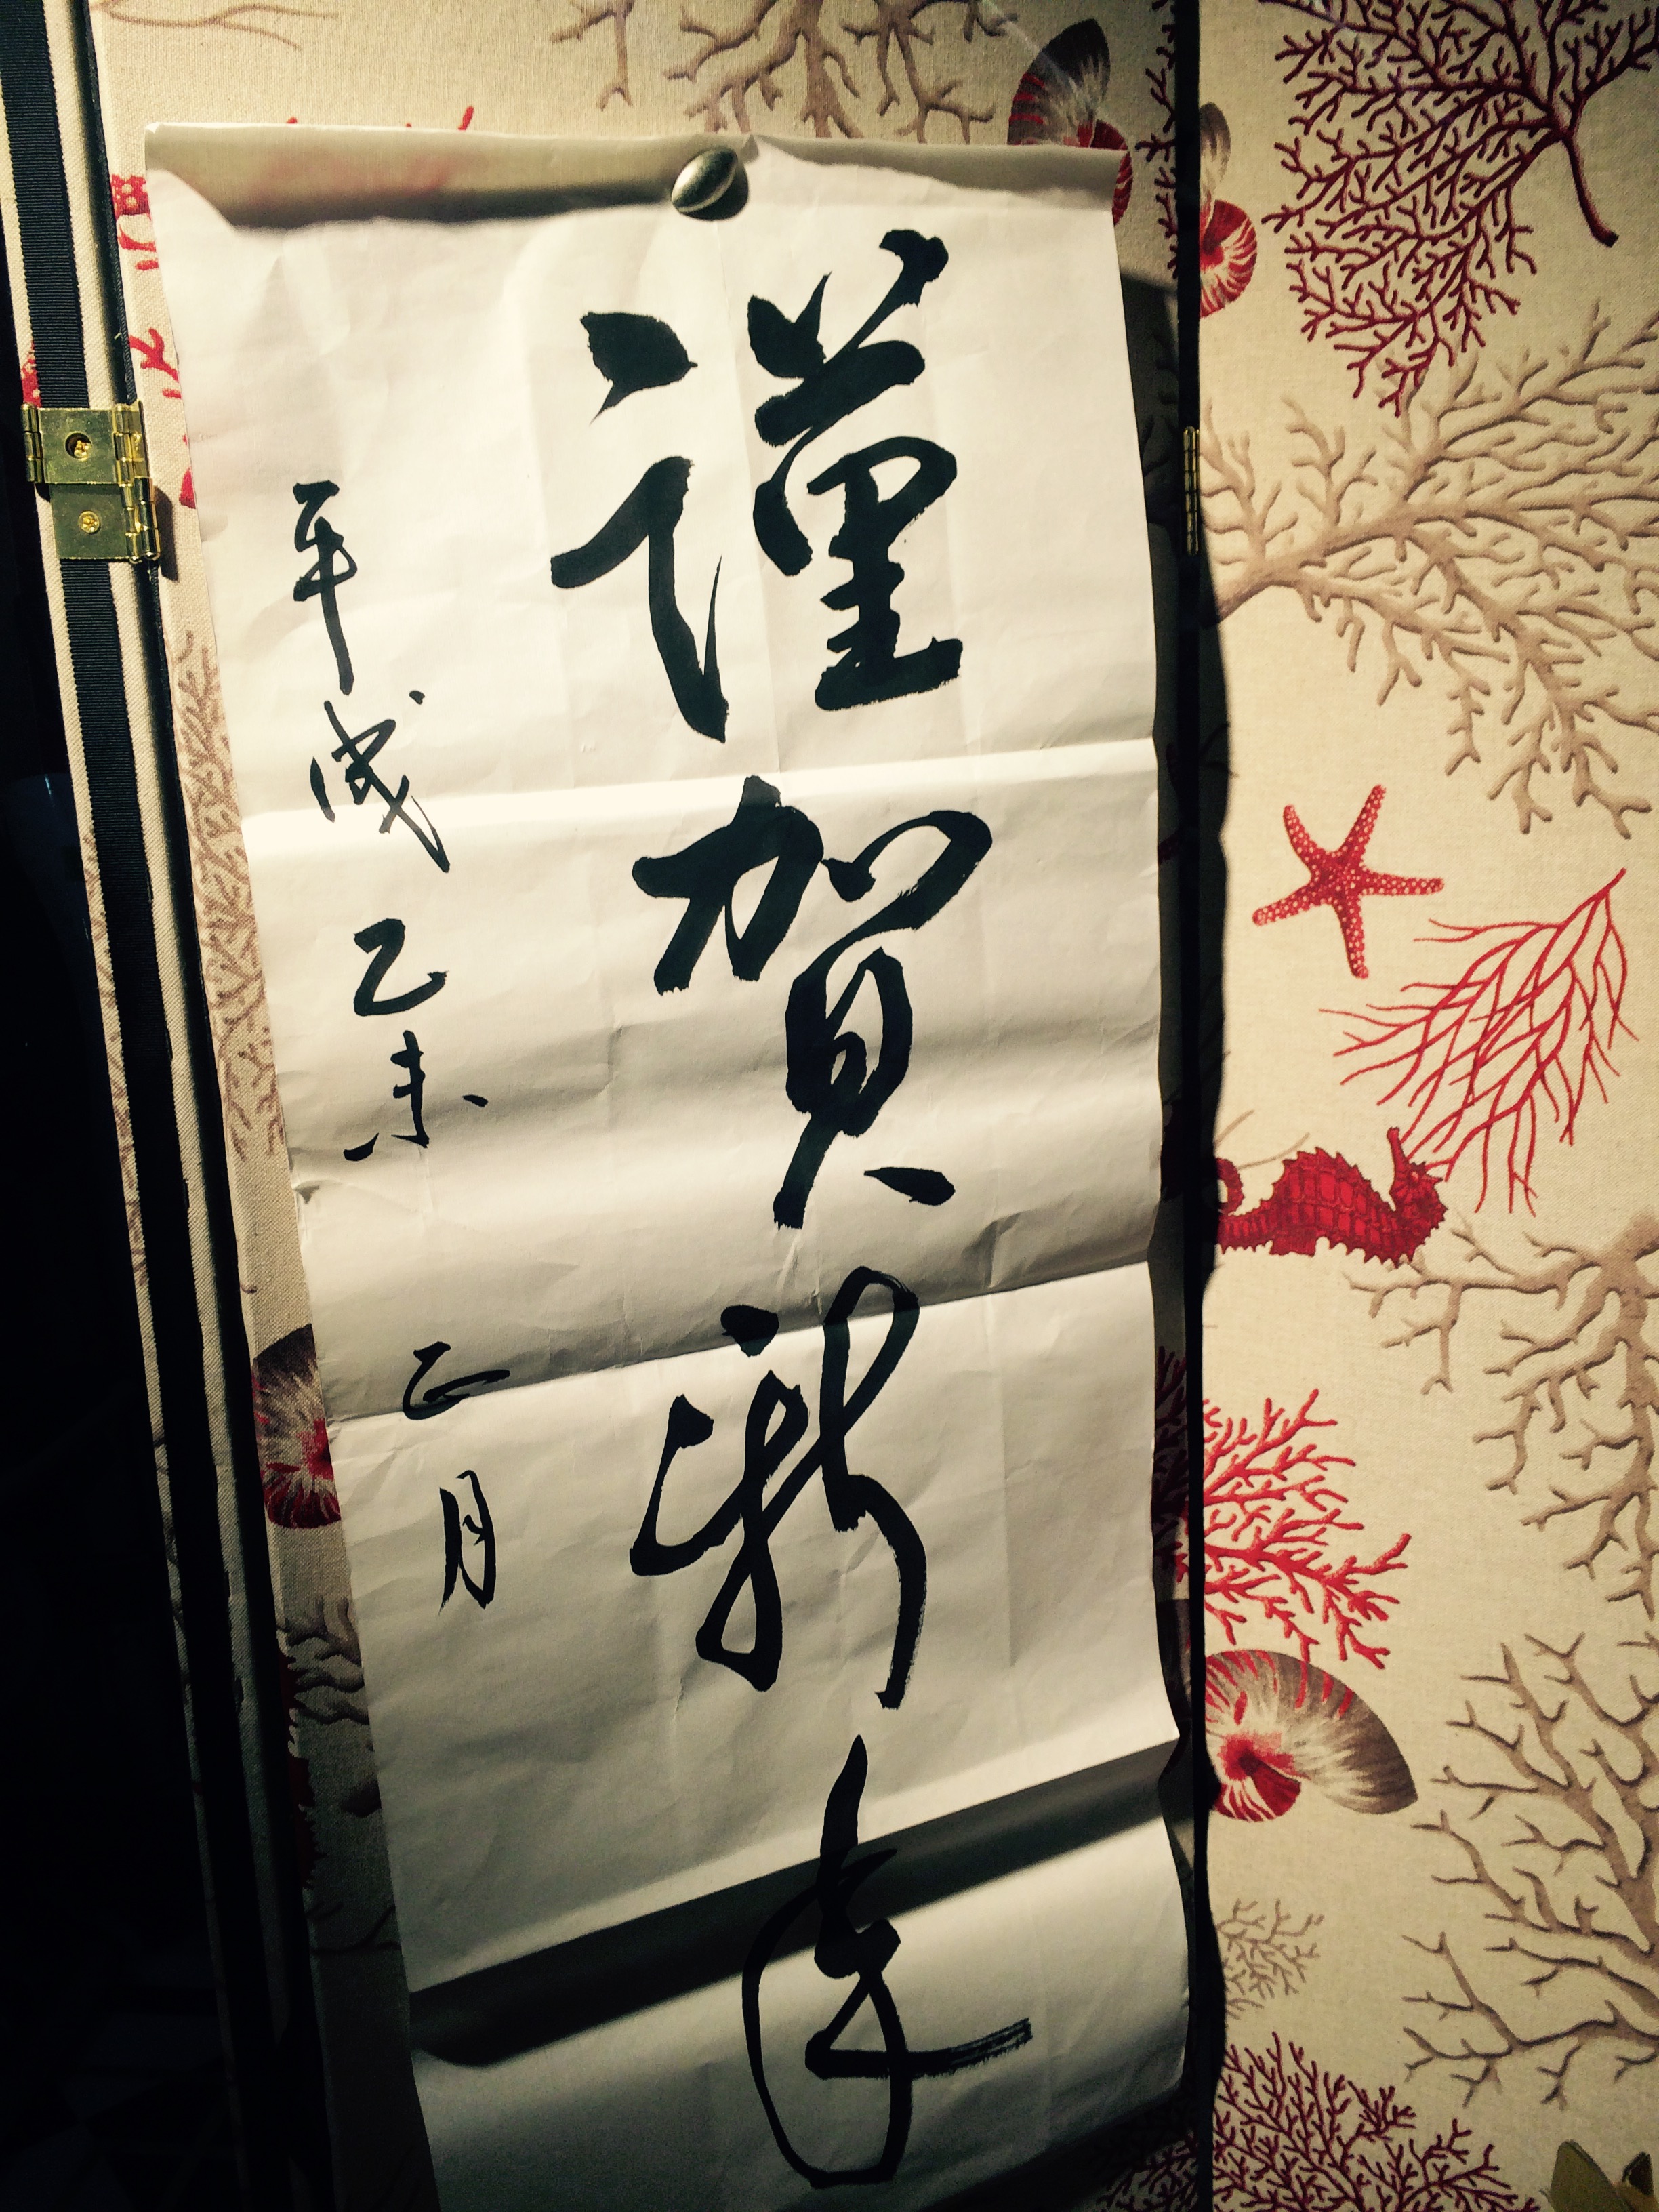 謹賀新年
平成乙未 正月